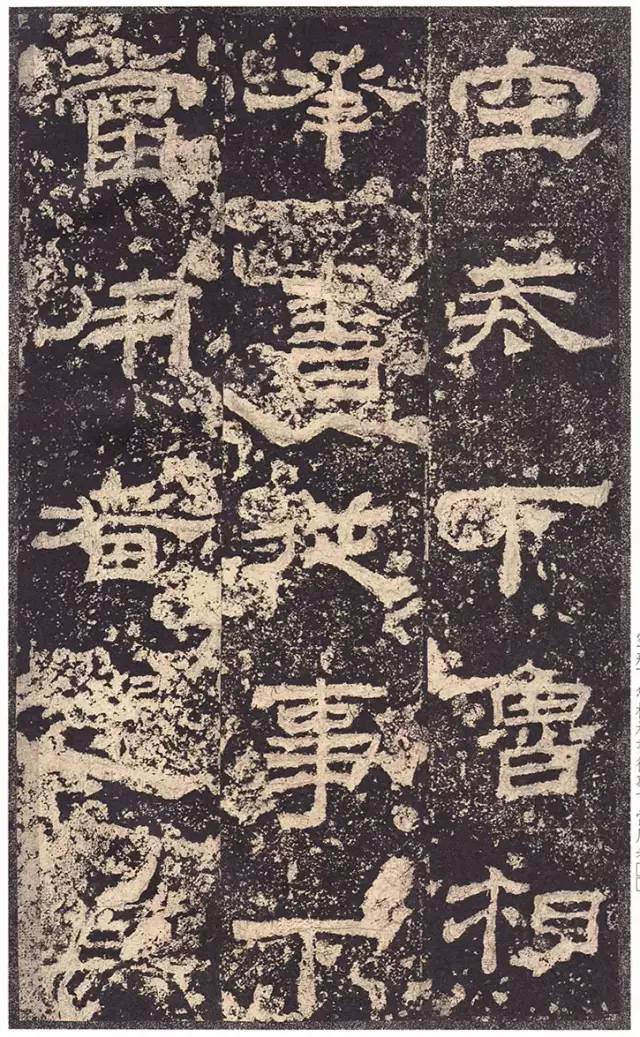 空戒下魯相
承書從事下
當用者選其